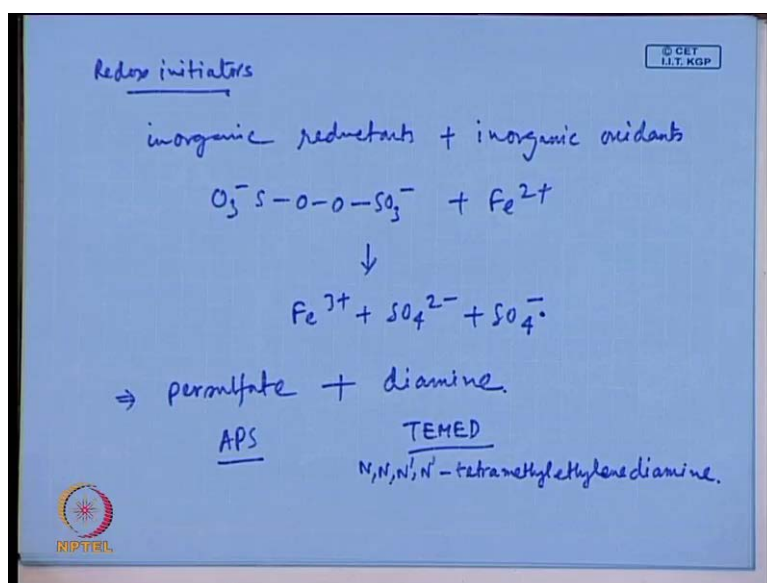 © CET
I.I.T. KGP
Redox initiators
inorganic reductants + inorganic oxidants
O₃⁻S-O-O-SO₃⁻ + Fe²⁺
↓
Fe³⁺ + SO₄²⁻ + SO₄⁻·
⇒ persulfate + diamine.
APS TEMED
N,N,N',N'-tetramethylethylenediamine.
NPTEL